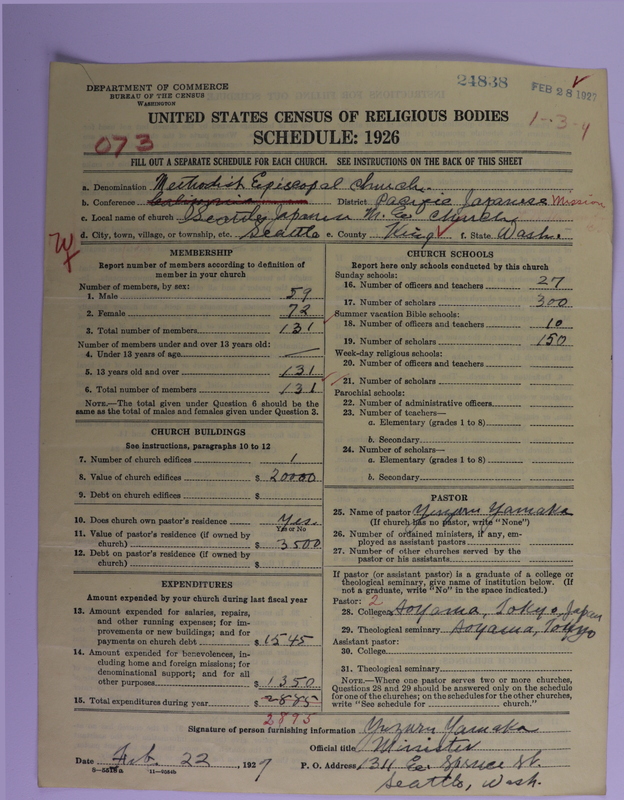 24838
FEB 28 1927
DEPARTMENT OF COMMERCE
BUREAU OF THE CENSUS
WASHINGTON
UNITED STATES CENSUS OF RELIGIOUS BODIES
SCHEDULE: 1926
1-3-4
073
FILL OUT A SEPARATE SCHEDULE FOR EACH CHURCH. SEE INSTRUCTIONS ON THE BACK OF THIS SHEET
a. Denomination Methodist Episcopal Church
b. Conference California District Pacific Japanese Mission
c. Local name of church Seattle Japanese M. E. Church
d. City, town, village, or township, etc. Seattle e. County King f. State Wash.
MEMBERSHIP
Report number of members according to definition of
member in your church
Number of members, by sex:
1. Male 59
2. Female 72
3. Total number of members 131
Number of members under and over 13 years old:
4. Under 13 years of age —
5. 13 years old and over 131
6. Total number of members 131
NOTE.—The total given under Question 6 should be the
same as the total of males and females given under Question 3.
CHURCH BUILDINGS
See instructions, paragraphs 10 to 12
7. Number of church edifices 1
8. Value of church edifices $ 20000
9. Debt on church edifices $
10. Does church own pastor's residence Yes
Yes or No
11. Value of pastor's residence (if owned by
church) $ 3500
12. Debt on pastor's residence (if owned by
church) $
EXPENDITURES
Amount expended by your church during last fiscal year
13. Amount expended for salaries, repairs,
and other running expenses; for im-
provements or new buildings; and for
payments on church debt $ 1545
14. Amount expended for benevolences, in-
cluding home and foreign missions; for
denominational support; and for all
other purposes $ 1350
15. Total expenditures during year $ 2885
2895
CHURCH SCHOOLS
Report here only schools conducted by this church
Sunday schools:
16. Number of officers and teachers 27
17. Number of scholars 300
Summer vacation Bible schools:
18. Number of officers and teachers 10
19. Number of scholars 150
Week-day religious schools:
20. Number of officers and teachers
21. Number of scholars
Parochial schools:
22. Number of administrative officers
23. Number of teachers—
a. Elementary (grades 1 to 8)
b. Secondary
24. Number of scholars—
a. Elementary (grades 1 to 8)
b. Secondary
PASTOR
25. Name of pastor Yuzuru Yamaka
(If church has no pastor, write "None")
26. Number of ordained ministers, if any, em-
ployed as assistant pastors
27. Number of other churches served by the
pastor or his assistants
If pastor (or assistant pastor) is a graduate of a college or
theological seminary, give name of institution below. (If
not a graduate, write "No" in the space indicated.)
Pastor: 2
28. College Aoyama, Tokyo, Japan
29. Theological seminary Aoyama, Tokyo
Assistant pastor:
30. College
31. Theological seminary
NOTE.—Where one pastor serves two or more churches,
Questions 28 and 29 should be answered only on the schedule
for one of the churches; on the schedules for the other churches,
write "See schedule for church."
Signature of person furnishing information Yuzuru Yamaka
Official title Minister
Date Feb. 22, 1927 P. O. Address 1311 E. Spruce St.
Seattle, Wash.
8—5518a 11—9584b